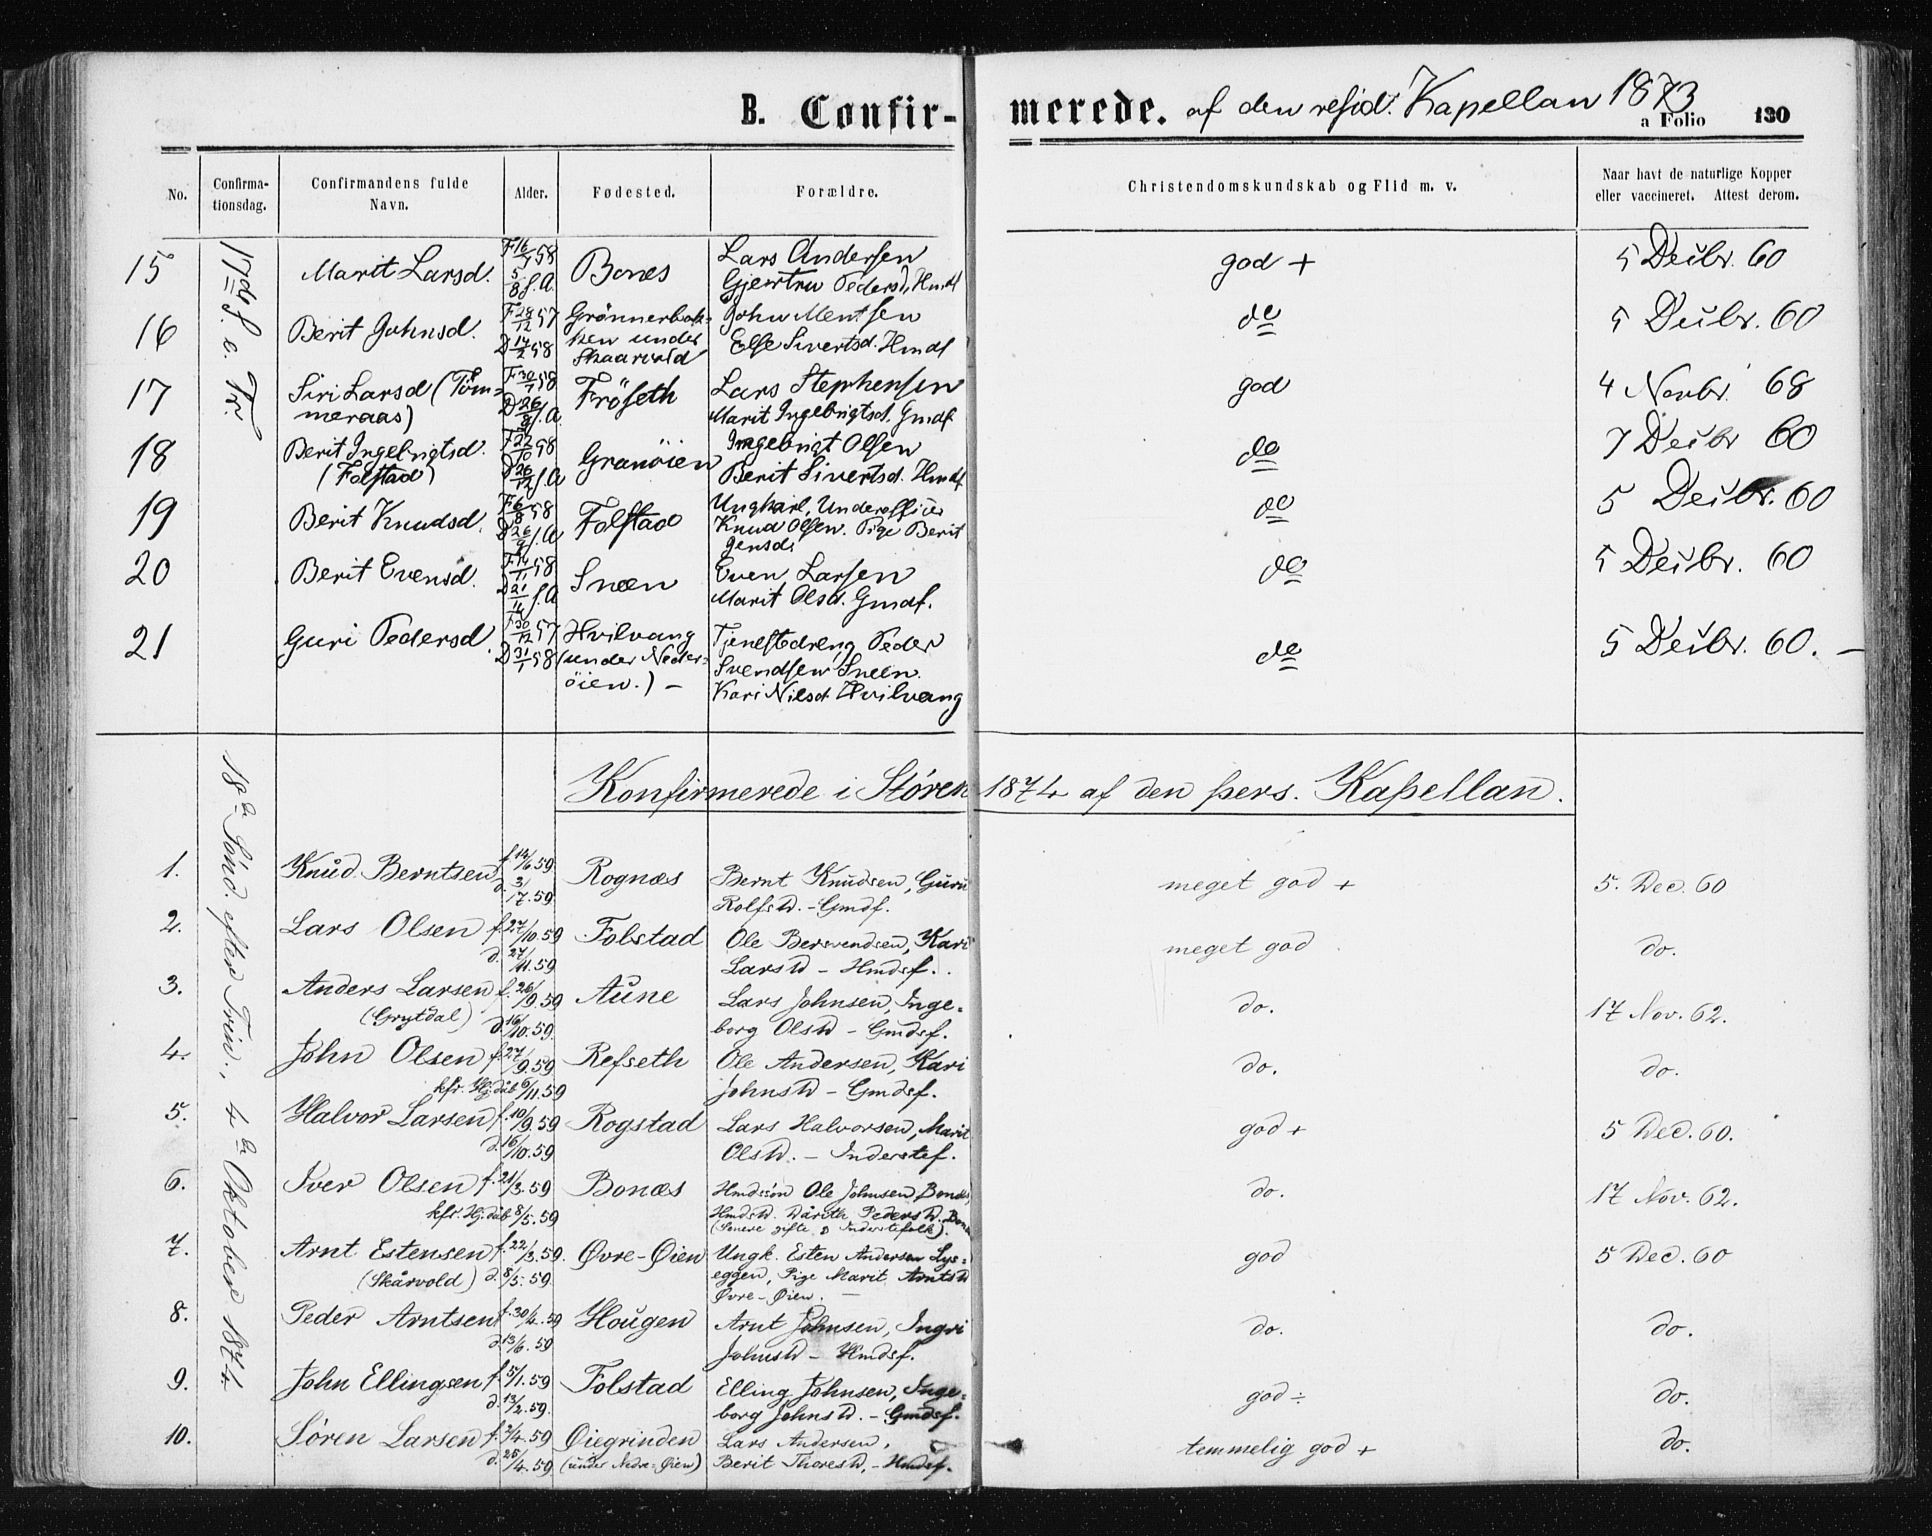 B. Confirmerede. af den resid. Kapellan 1873
a Folio 130
No. Confirmationsdag. Confirmandens fulde Navn. Alder. Fødested. Forældre. Christendomskundskab og Flid m. v. Naar havt de naturlige Kopper eller vaccineret. Attest derom.
17de S. e. Tr.
15 Marit Larsd. F 16/7 58 Bones Lars Andersen god + 5 Decbr. 60
5/8 s. A. Gjertru Pedersd. Hmdf
16 Berit Johnsd. F 28/12 57 Grönnerbak= John Mentsen do 5 Decbr. 60
D 14/2 58 ken under Else Sivertsd. Hmdf
Skaarvold
17 Siri Larsd (Tøm= F 30/7 58 Fröseth Lars Stephensen god 4 Novbr. 68
meraas) D 26/9 s. A. Marit Ingebrigtsd. Gmdf.
18 Berit Ingebrigtsd. F 22/10 58 Granöien Ingebrigt Olsen do 7 Decbr 60
(Folstad) D 26/12 s. A Berit Sivertsd. Hmdf.
19 Berit Knudsd. F 6/8 58 Folstad Ungkarl, Underofficer do 5 Decbr. 60
D 26/9 s. A Knud Olsen. Pige Berit
Jensd.
20 Berit Evensd. F 14/11 58 Snøen Even Larsen do 5 Decbr. 60
D 21/11 s. A Marit Olsd. Gmdf.
21 Guri Pedersd. F 30/12 57 Hvilvang Tjenestedreng Peder do 5 Decbr. 60. –
D 31/1 58 (under Neder= Svendsen Sneen.
öien.) – Kari Nilsd. Hvilvang
Konfirmerede i Støren 1874 af den pers. Kapellan.
18de Sønd. efter Trin., 4de Oktober 1874.
1. Knud Berntsen f. 14/6.59 Rognæs Bernt Knudsen, Guru meget god + 5. Dec. 60
d. 3/7.59 Rolfsd. – Gmdf.
2. Lars Olsen f. 27/10.59 Folstad Ole Bersvendsen, Kari meget god do.
d. 27/11.59 Larsd – Hmdsf.
3. Anders Larsen f. 26/9.59 Aune Lars Johnsen, Inge= do. 17 Nov. 62.
(Grytdal) d. 16/10.59. borg Olsd – Gmdsf.
4. John Olsen f. 27/9.59 Refseth Ole Andersen, Kari do. do.
kfr. Hj.dåb 6/11.59 Johnsd – Gmdsf.
5. Halvor Larsen f. 10/9.59 Rogstad Lars Halvorsen, Marit god + 5 Dec. 60.
d. 16/10.59 Olsd. – Inderstef.
6. Iver Olsen f. 21/3.59 Bonæs Hmdssøn Ole Johnsen Bonæs, do. 17 Nov. 62.
kfr. Hj.dåb 8/5.59 Hmdsd. Dårøth Pedersd.
(Senere gifte & Inderstefolk).
7. Arnt Estensen f. 22/3.59. Øvre-Øien Ungk. Esten Andersen Lys= god 5 Dec. 60
(Skårvold) d. 8/5.59 eggen, Pige Marit Arntsd
Øvre-Øien. –
8. Peder Arntsen f. 30/4.59 Hougen Arnt Johnsen, Ingri do. do.
d. 13/6.59 Johnsd – Hmdsf.
9. John Ellingsen f. 5/1.59 Folstad Elling Johnsen, Inge= god ÷ do.
d. 13/2.59. borg Johnsd. – Gmdsf.
10. Søren Larsen f. 2/4.59 Øiegrinden Lars Andersen, temmelig god + do.
d. 25/4.59 (under Nedre-Øien) Berit Thoresd, – Hmdsf.